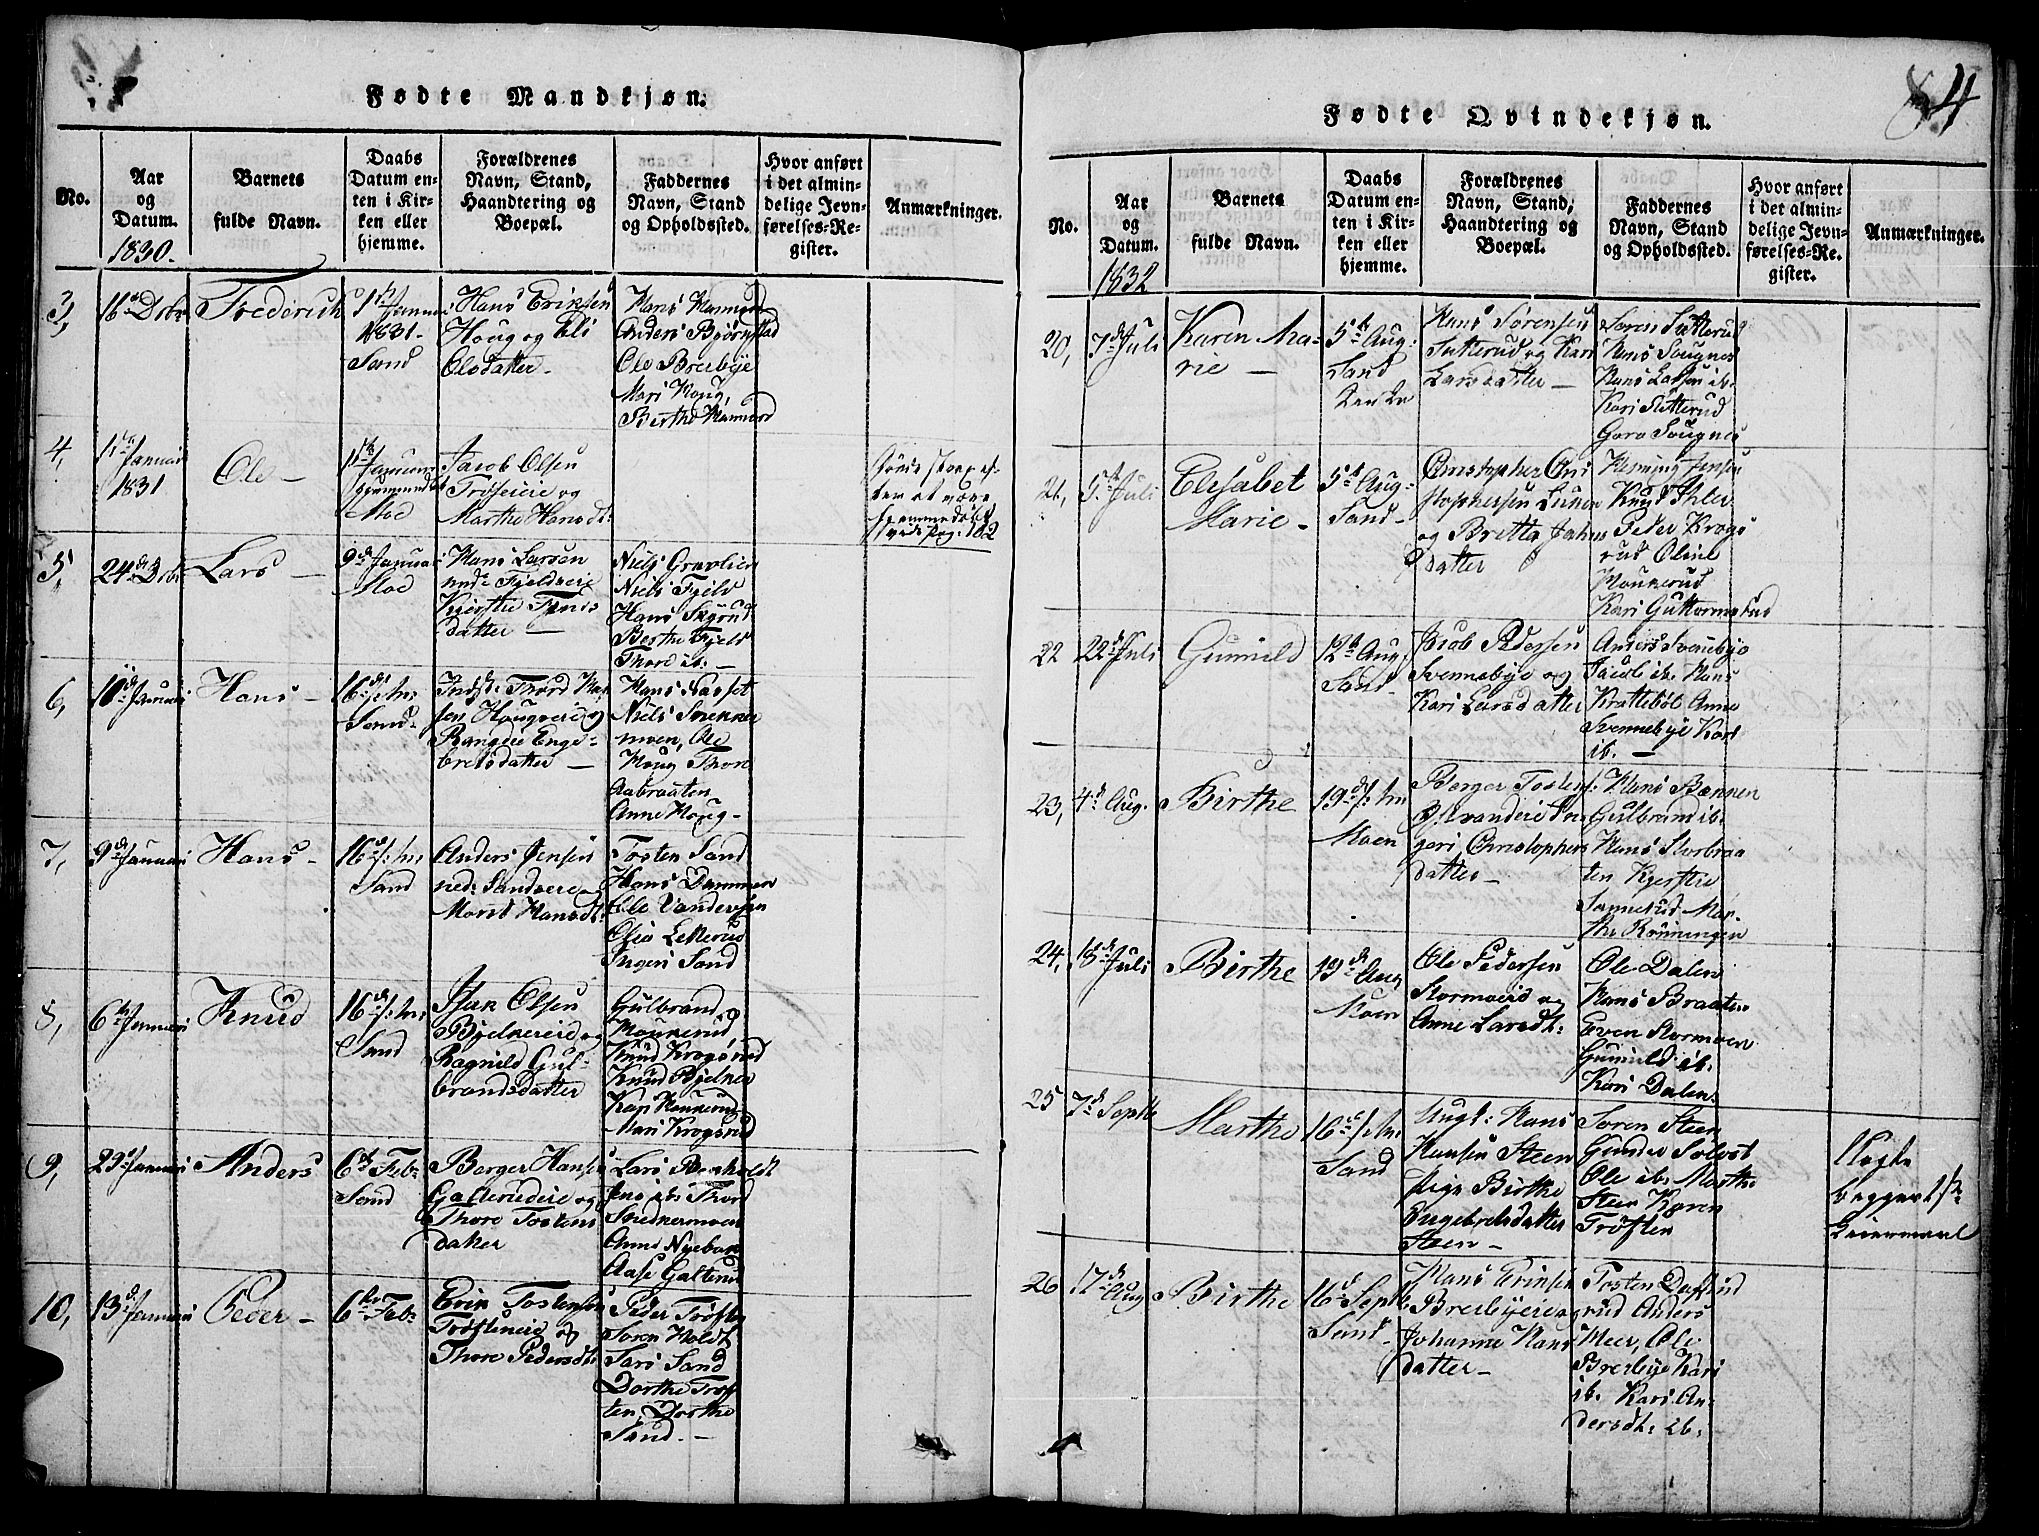 84
Fødte Mandkjøn.
No.
Aar
og
Datum.
1830.
Barnets
fulde Navn.
Daabs
Datum en-
ten i Kir-
ken eller
hjemme.
Forældrenes
Navn, Stand,
Haandtering og
Boepæl.
Faddernes
Navn, Stand
og Opholdssted.
Hvor anført
i det almin-
delige Jevn-
førelses-Re-
gister.
Anmærkninger.
3,
16de Dcbr
Frederich
1ste Januari
1831.
Sand
Hans Eriksen
Houg og Eli
Olsdatter
Hans Hammerd
Anders Bjørnstad
Ole Brerbye
Mari Houg,
Berthe Hammerd
4,
1ste Januari
1831
Ole
Januari
hjemmedøbt
Moe
Jacob Olsen
Trøseie og
Marthe Hansdt:
døde strax ef-
ter at være
hjemmedøbt
vide pag: 182
5,
24de Dcbr
Lars
9de Januari
Moe
Hans Larsen
Fjeldseie
Kjerstie Tønes
datter
Niels Gravlien
Niels Fjeld
Hans
Berthe Fjeld
Thore ib:
6,
10de Januari
Hans
16de s: m:
Sand
Indst: Thord Han
sen Hougseie og
Rangdie Enge-
bretsdatter
Hans Hasset
Niels Snekker
moen, Ole
Houg Thore
Aabraaten
Anne Houg
7,
9de Januari
Hans
16de s: m:
Sand
Anders Jensen
ned: Sandseie og
Marit Hansdt:
Tosten Sand
Hans Dammen
Ole Vandersen
Olia Lekerud
Ingeri Sand
8,
6te Januari
Knud
16de s: m:
Sand
Isak Olsen
Bjelkereie og
Ragnild Gul-
brandsdatter
Gulbrand
Houkerud
Knud Krogsrud
Knud Bjelker
Kari Houkerud
Mari Krogsrud
9,
29de Januari
Anders
6te Feb:
Sand
Berger Hansen
Galterudeie og
Thore Tostens
datter
Lars Berholdt
Jens ib: Thord
Snekkermoen
Anne Nyebak
Aase Galterud
10,
13de Januari
Peder
6te Feb:
Erik Tostensen
Trøsteneie og
Thore Pedersdt:
Peder Trøsten
Soren Holdt
Lars Sand
Dorthe Trøs
ten, Dorthe
Sand.
Fødte Qvindekjøn.
No.
Aar
og
Datum.
1832
Barnets
fulde Navn.
Daabs
Datum en-
ten i Kir-
ken eller
hjemme.
Forældrenes
Navn, Stand,
Haandtering og
Boepæl.
Faddernes
Navn, Stand
og Opholdssted.
Hvor anført
i det almin-
delige Jevn-
førelses-Re-
gister.
Anmærkninger.
20,
7de Juli
Karen Ma-
rie
5te Aug:
Sand
Hans Sørensen
Sætterud og Kari
Larsdatter
Soren Sætterud
Hans Sougnes
Hans Larsen ib.
Kari Sætterud
Goro Sougnes
21,
5te Juli
Elisabet
Marie
5te Aug:
Sand
Christopher Chri
stophersen Lunder
og Britta Johns
datter
Henning Jensen
Knud Ihler
Peter Krogs
rud Oline
Houkerud
Kari Guttormsrud
22
22de Juli
Gunnild
12te Aug
Sand
Jacob Pedersen
Svennebye og
Kari Larsdatter
Anders Svennebye
Jacob ib. Hans
Krattebøl Anne
Svennebye Kari
ib.
23,
4de Aug.
Birthe
19de s: m:
Moen
Berger Tostens:
Ingeri Christophers
datter
Hans Bennen
Gulbrand ib.
Hans Storbraa
ten Kjerstie
Sannerud Mar-
the Rønningen
24,
18de Juli
Birthe
19de Aug
Moen
Ole Pedersen
Stormoeie og
Anne Larsdt:
Ole Dalen
Hans Braaten
Even Stormoen
Gunnild ib.
Kari Dalen.
25
7de Septbr
Marthe
16de s: m:
Sand
Ungk: Hans
Hansen Steen
Pige Birthe
Engebretsdatter
Steen
Soren Steen
Gunder Solvst
Ole ib. Marthe
Steen Karen
Trøsten
Uægte
begges 1ste
Leiermaal
26
17de Aug
Birthe
16de Septb
Sand
Hans Eriksen
Brerbyeie og
Johanne Hans
datter
Tosten Dafsrud
Anders
Meer, Ole
Brerbye Kari
ib. Kari An-
dersdt: ib.